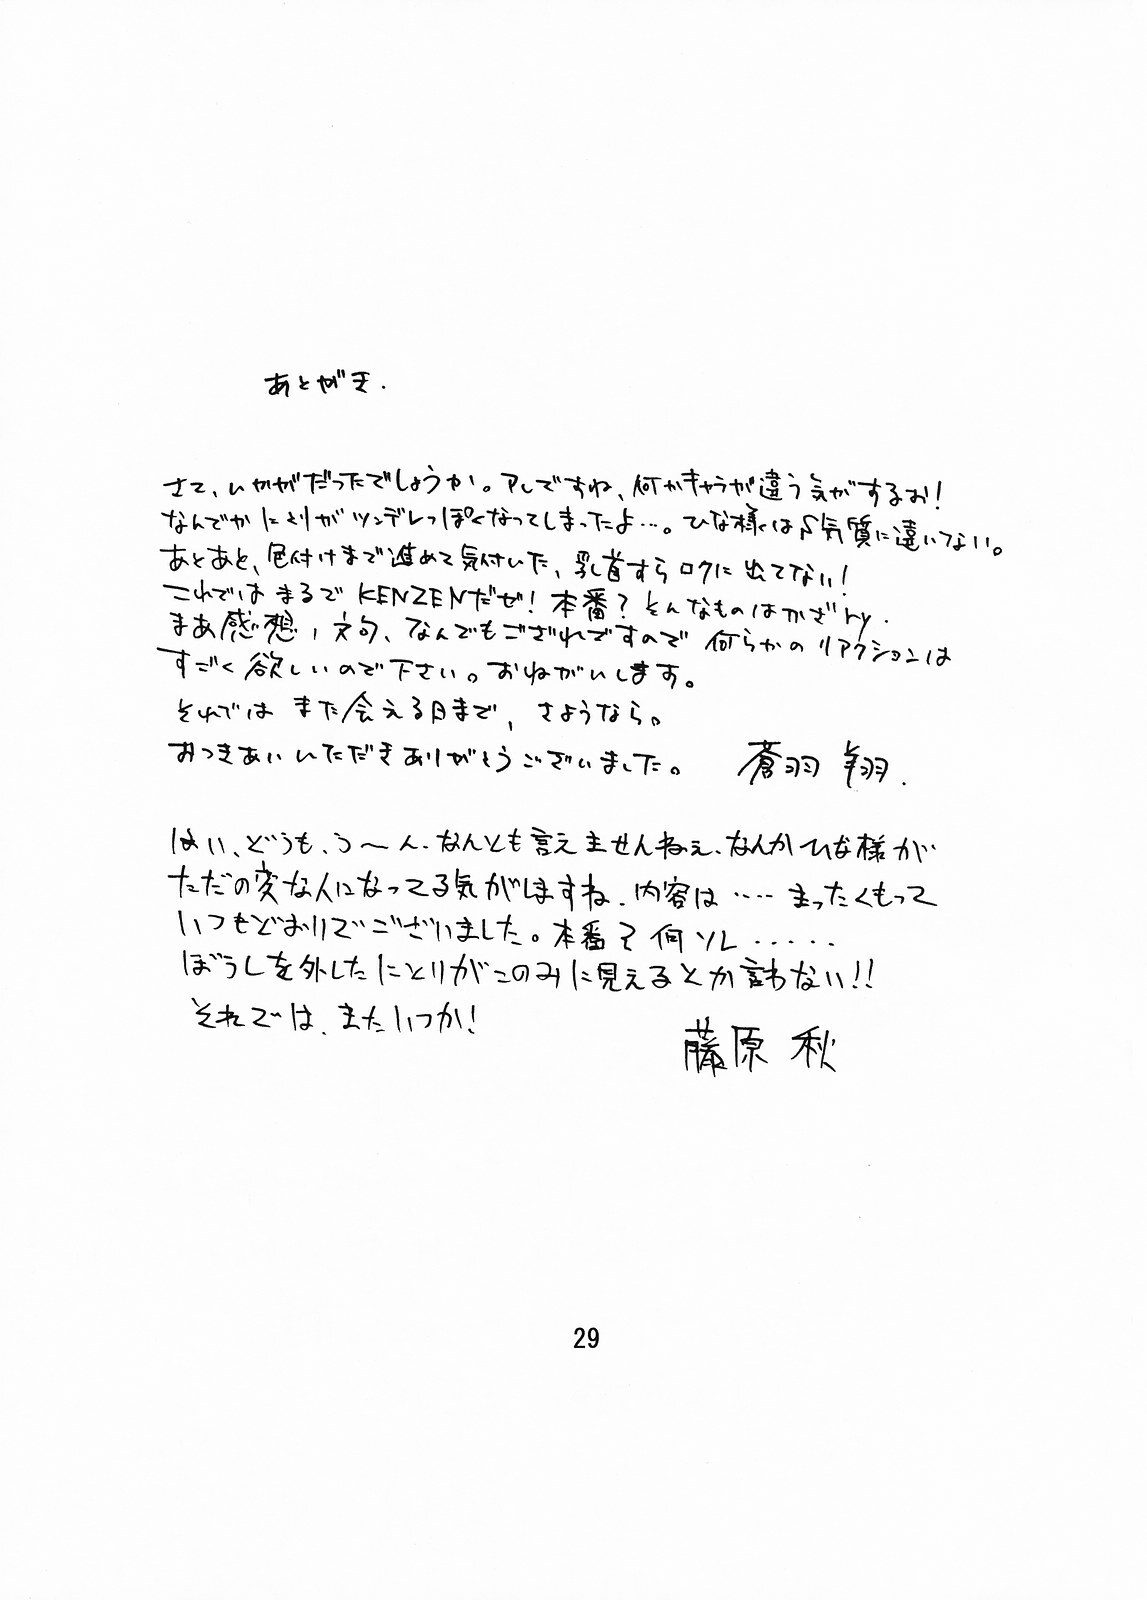 あとがき.
さて、いかがだったでしょうか。アレですね、何かキャラが違う気がするお!
なんでかにとりがツンデレっぽくなってしまったよ…。ひな様はS気質に違いない。
あとあと、色付けまで進めて気付いた、乳首すらロクに出てない!
これではまるでKENZENだぜ!本番?そんなものはかざry.
まあ感想、文句、なんでもござれですので何らかのリアクションは
すごく欲しいので下さい。おねがいします。
それではまた会える日まで、さようなら。
おつきあいいただきありがとうございました。 蒼羽 翔.
はい、どうも、う〜ん、なんとも言えませんねぇ、なんかひな様が
ただの変な人になってる気がしますね.内容は‥‥まったくもって
いつもどおりでございました。本番て何ソレ‥‥‥
ぼうしを外したにとりがこのみに見えるとか言わない!!
それでは、またいつか!
藤原 秋
29